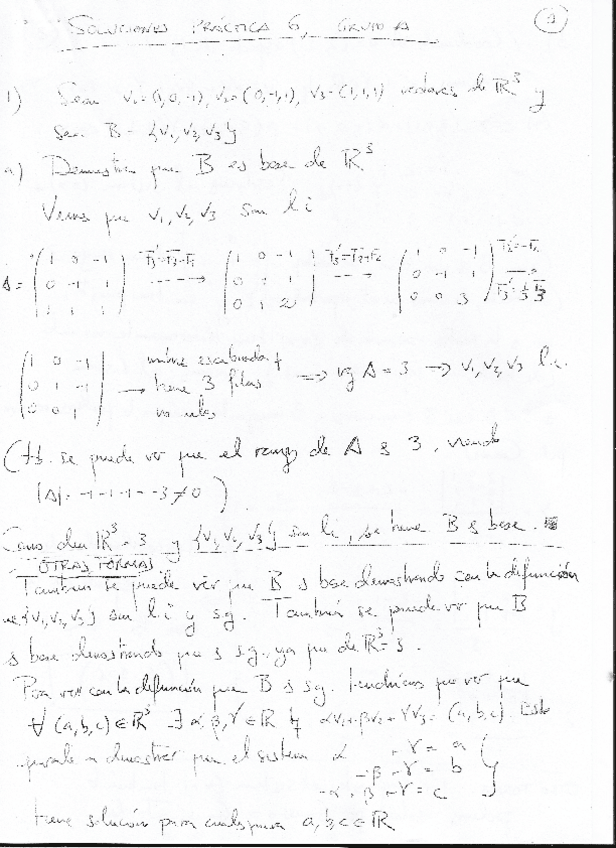 SOLUCIONES PRÁCTICA 6, GRUPO A
1) Sean v1=(1,0,-1), v2=(0,-1,1), v3=(1,1,1) vectores de ℝ³ y
sea B={v1,v2,v3}
a) Demostrar que B es base de ℝ³
Veamos que v1,v2,v3 son l i
A = (1 0 -1 / 0 -1 1 / 1 1 1) F3'=F3-F1 → (1 0 -1 / 0 -1 1 / 0 1 2) F3'=F3+F2 → (1 0 -1 / 0 -1 1 / 0 0 3) F2'=-F2 F3'=1/3 F3 →
(1 0 -1 / 0 1 -1 / 0 0 1) → matriz escalonada y tiene 3 filas no nulas ⟹ rg A = 3 → v1,v2,v3 l i.
(tb. se puede ver que el rango de A es 3, viendo
|A|= -1-1-1=-3≠0)
Como dim ℝ³=3 y {v1,v2,v3} son li, se tiene B es base.
OTRAS FORMAS
También se puede ver que B es base demostrando con la definición
que {v1,v2,v3} son l i y s.g. También se puede ver que B
es base demostrando que es s.g. ya que dim ℝ³=3.
Para ver con la definición que B es s.g. tendríamos que ver que
∀ (a,b,c)∈ℝ³ ∃ α,β,γ∈ℝ tq αv1+βv2+γv3=(a,b,c). Esto
equivale a demostrar que el sistema α +γ = a
-β+γ = b
-α+β+γ=c
tiene solución para cualesquiera a,b,c∈ℝ